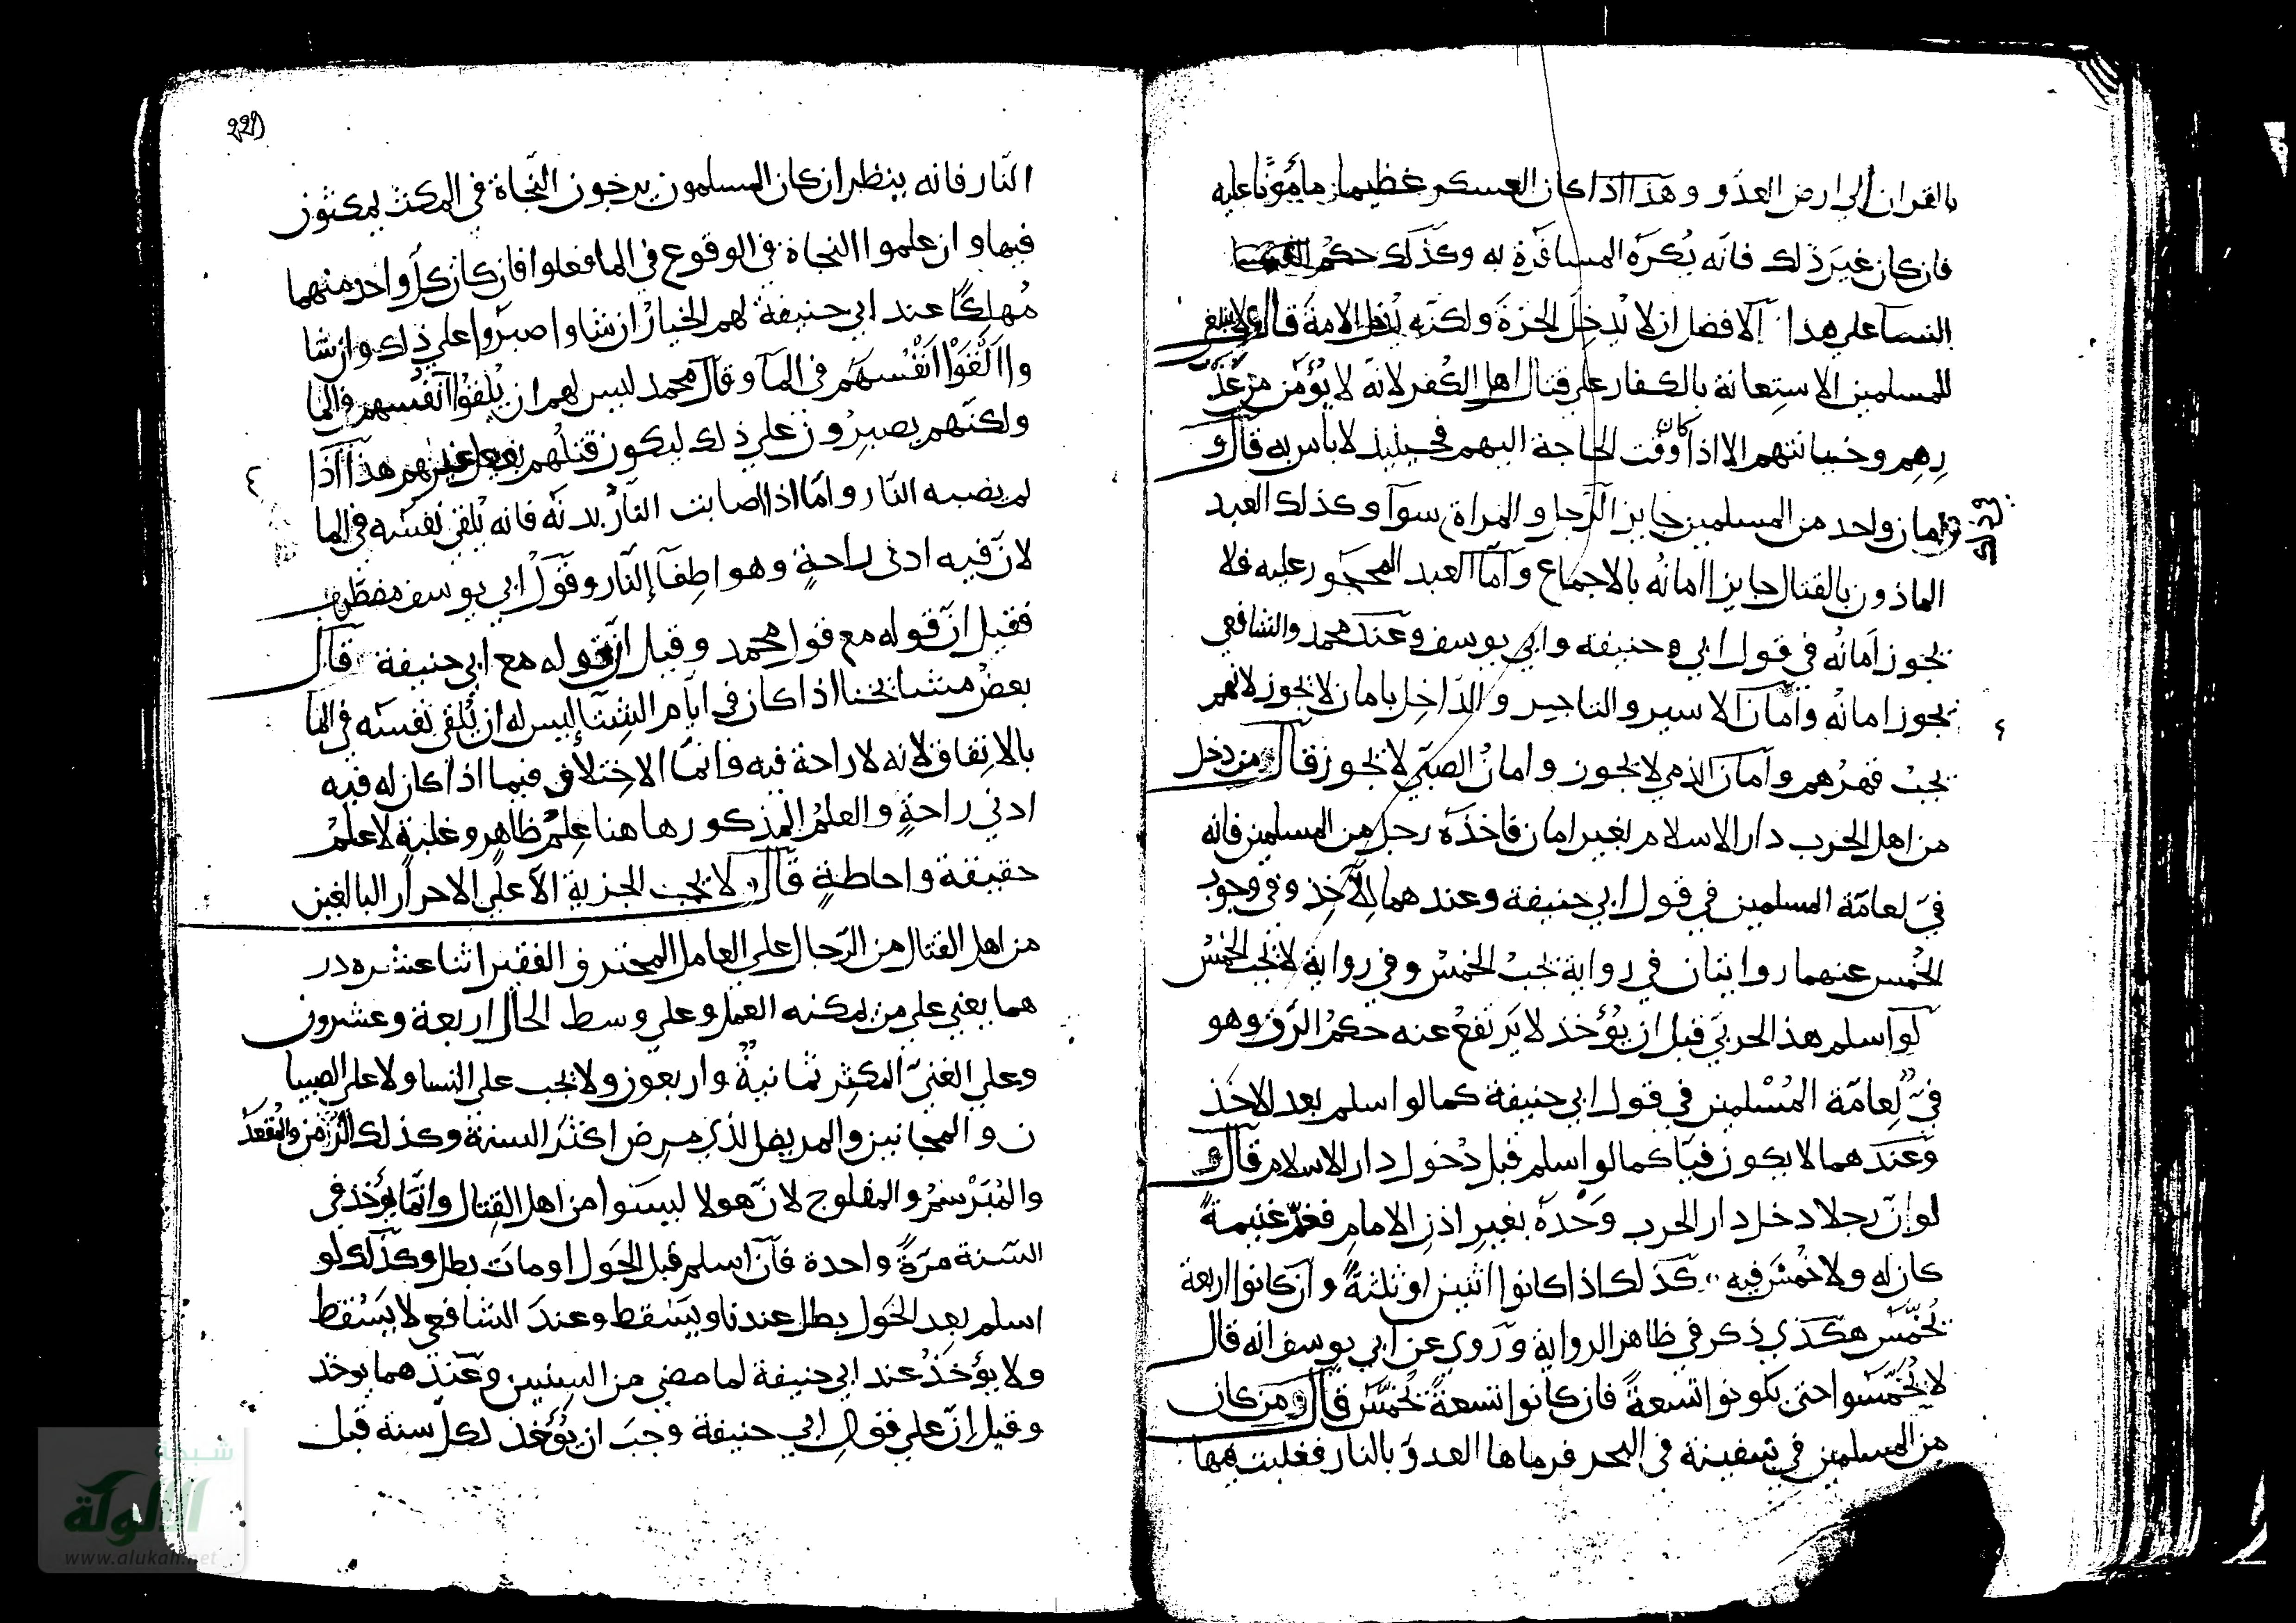 بالقران الي ارض العدو وهذا اذا كان العسكر عظيما مأمونا عليه
فان كان غير ذلك فانه يكره المسافرة به وكذلك حكم
النسا علي هذا الافضل ان لا يدخل الحرة ولكنه يدخل الامة قال ولا ينبغي
للمسلمين الاستعانة بالكفار علي قتال اهل الكفر لانه لا يؤمن من غد
رهم وخيانتهم الا اذا كان وقت الحاجة اليهم فحينيذ لا بأس به قال و
امان واحد من المسلمين جايز الرجل والمراة سوآ وكذلك العبد
الماذون بالقتال جايز امانه بالاجماع وأما العبد المحجور عليه فلا
يجوز امانه في قول ابي حنيفه وابي يوسف وعند محمد والشافعي
يجوز امانه وأمان الاسير والتاجر والداخل بامان لا يجوز لانهم
تحت قهرهم وأمان الذمي لا يجوز وامان الصبي لا يجوز قال ومن دخل
من اهل الحرب دار الاسلام بغير امان فاخذه رجل من المسلمين فانه
فئ لعامة المسلمين في قول ابي حنيفة وعندهما للآخذ وفي وجوب
الخمس عنهما روايتان في رواية يجب الخمس وفي رواية لا يجب الخمس
لو اسلم هذا الحربي قبل ان يؤخذ لا يرتفع عنه حكم الرق وهو
فئ لعامة المسلمين في قول ابي حنيفة كما لو اسلم بعد الاخذ
وعندهما لا يكون فيئا كما لو اسلم قبل دخول دار الاسلام قال و
لو ان رجلا دخل دار الحرب وحده بغير اذن الامام فغنم غنيمة
كان له ولا خمس فيه كذلك اذا كانوا اثنين او ثلثة وان كانوا اربعة
يخمس هكذي ذكر في ظاهر الرواية وروي عن ابي يوسف انه قال
لا يخمسوا حتي يكونوا تسعة فان كانوا تسعة يخمس قال ومن كان
من المسلمين في سفينة في البحر فرماها العدو بالنار فغلبت بهما
229
النار فانه ينظر ان كان المسلمون يرجون النجاة في المكث يمكثون
فيها وان علموا النجاة في الوقوع في الما فعلوا فان كان كل واحد منهما
مهلكا عند ابي حنيفة لهم الخيار ان شاوا صبروا علي ذلك وان شا
وا القوا انفسهم في المآ وقال محمد ليس لهم ان يلقوا انفسهم في الما
ولكنهم يصبرون علي ذلك ليكون قتلهم بفعل غيرهم هذا اذا
لم يصبه النار واما اذا اصابت النار بدنه فانه يلقي نفسه في الما
لان فيه ادني راحة وهو اطفآ النار وقول ابي يوسف مضطرب
فقيل ان قوله مع قول محمد وقيل ان قوله مع ابي حنيفة قال
بعض مشايخنا اذا كان في ايام الشتا ليس له ان يلقي نفسه في الما
بالاتفاق لانه لا راحة فيه وانما الاختلاف فيما اذا كان له فيه
ادني راحة والعلم المذكور هاهنا علم ظاهر وغلبة لا علم
حقيقة واحاطة قال لا يجب الجزية الا علي الاحرار البالغين
من اهل القتال من الرجال علي العامل المحترف الفقير اثنا عشره در
هما يعني علي من يمكنه العمل وعلي وسط الحال اربعة وعشرون
وعلي الغني المكثر ثمانية واربعون ولا يجب علي النسا ولا علي الصبيا
ن والمجانين والمريض الذي مرض اكثر السنة وكذلك الزمن والمقعد
والمبرسم والمفلوج لان هولا ليسوا من اهل القتال وانما يؤخذ في
السنة مرة واحدة فان اسلم قبل الحول او مات بطل وكذلك لو
اسلم بعد الحول بطل عندنا ويسقط وعند الشافعي لا يسقط
ولا يؤخذ عند ابي حنيفة لما مضي من السنين وعندهما يوخذ
وقيل ان علي قول ابي حنيفة وجب ان يؤخذ لكل سنة قبل
شبكة
الألوكة
www.alukah.net